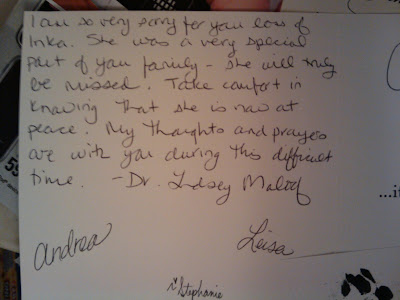 I am so very sorry for your loss of
Inka. She was a very special
part of your family - she will truly
be missed. Take comfort in
knowing that she is now at
peace. My thoughts and prayers
are with you during this difficult
time. - Dr. Lindsey
Andrea
Leisa
Stephanie
...it